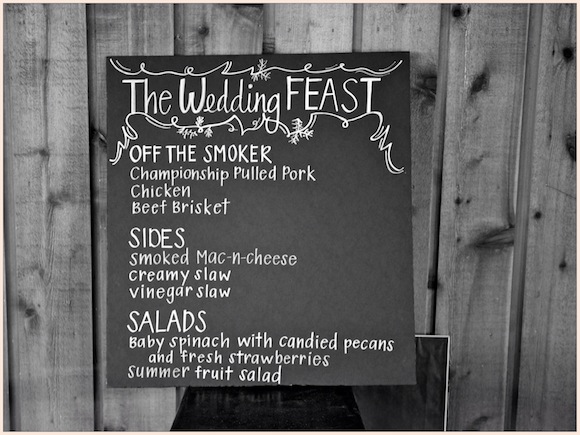 The Wedding FEAST
OFF THE SMOKER
Championship Pulled Pork
Chicken
Beef Brisket
SIDES
smoked Mac-n-cheese
creamy slaw
vinegar slaw
SALADS
Baby spinach with candied pecans
and fresh strawberries
summer fruit salad